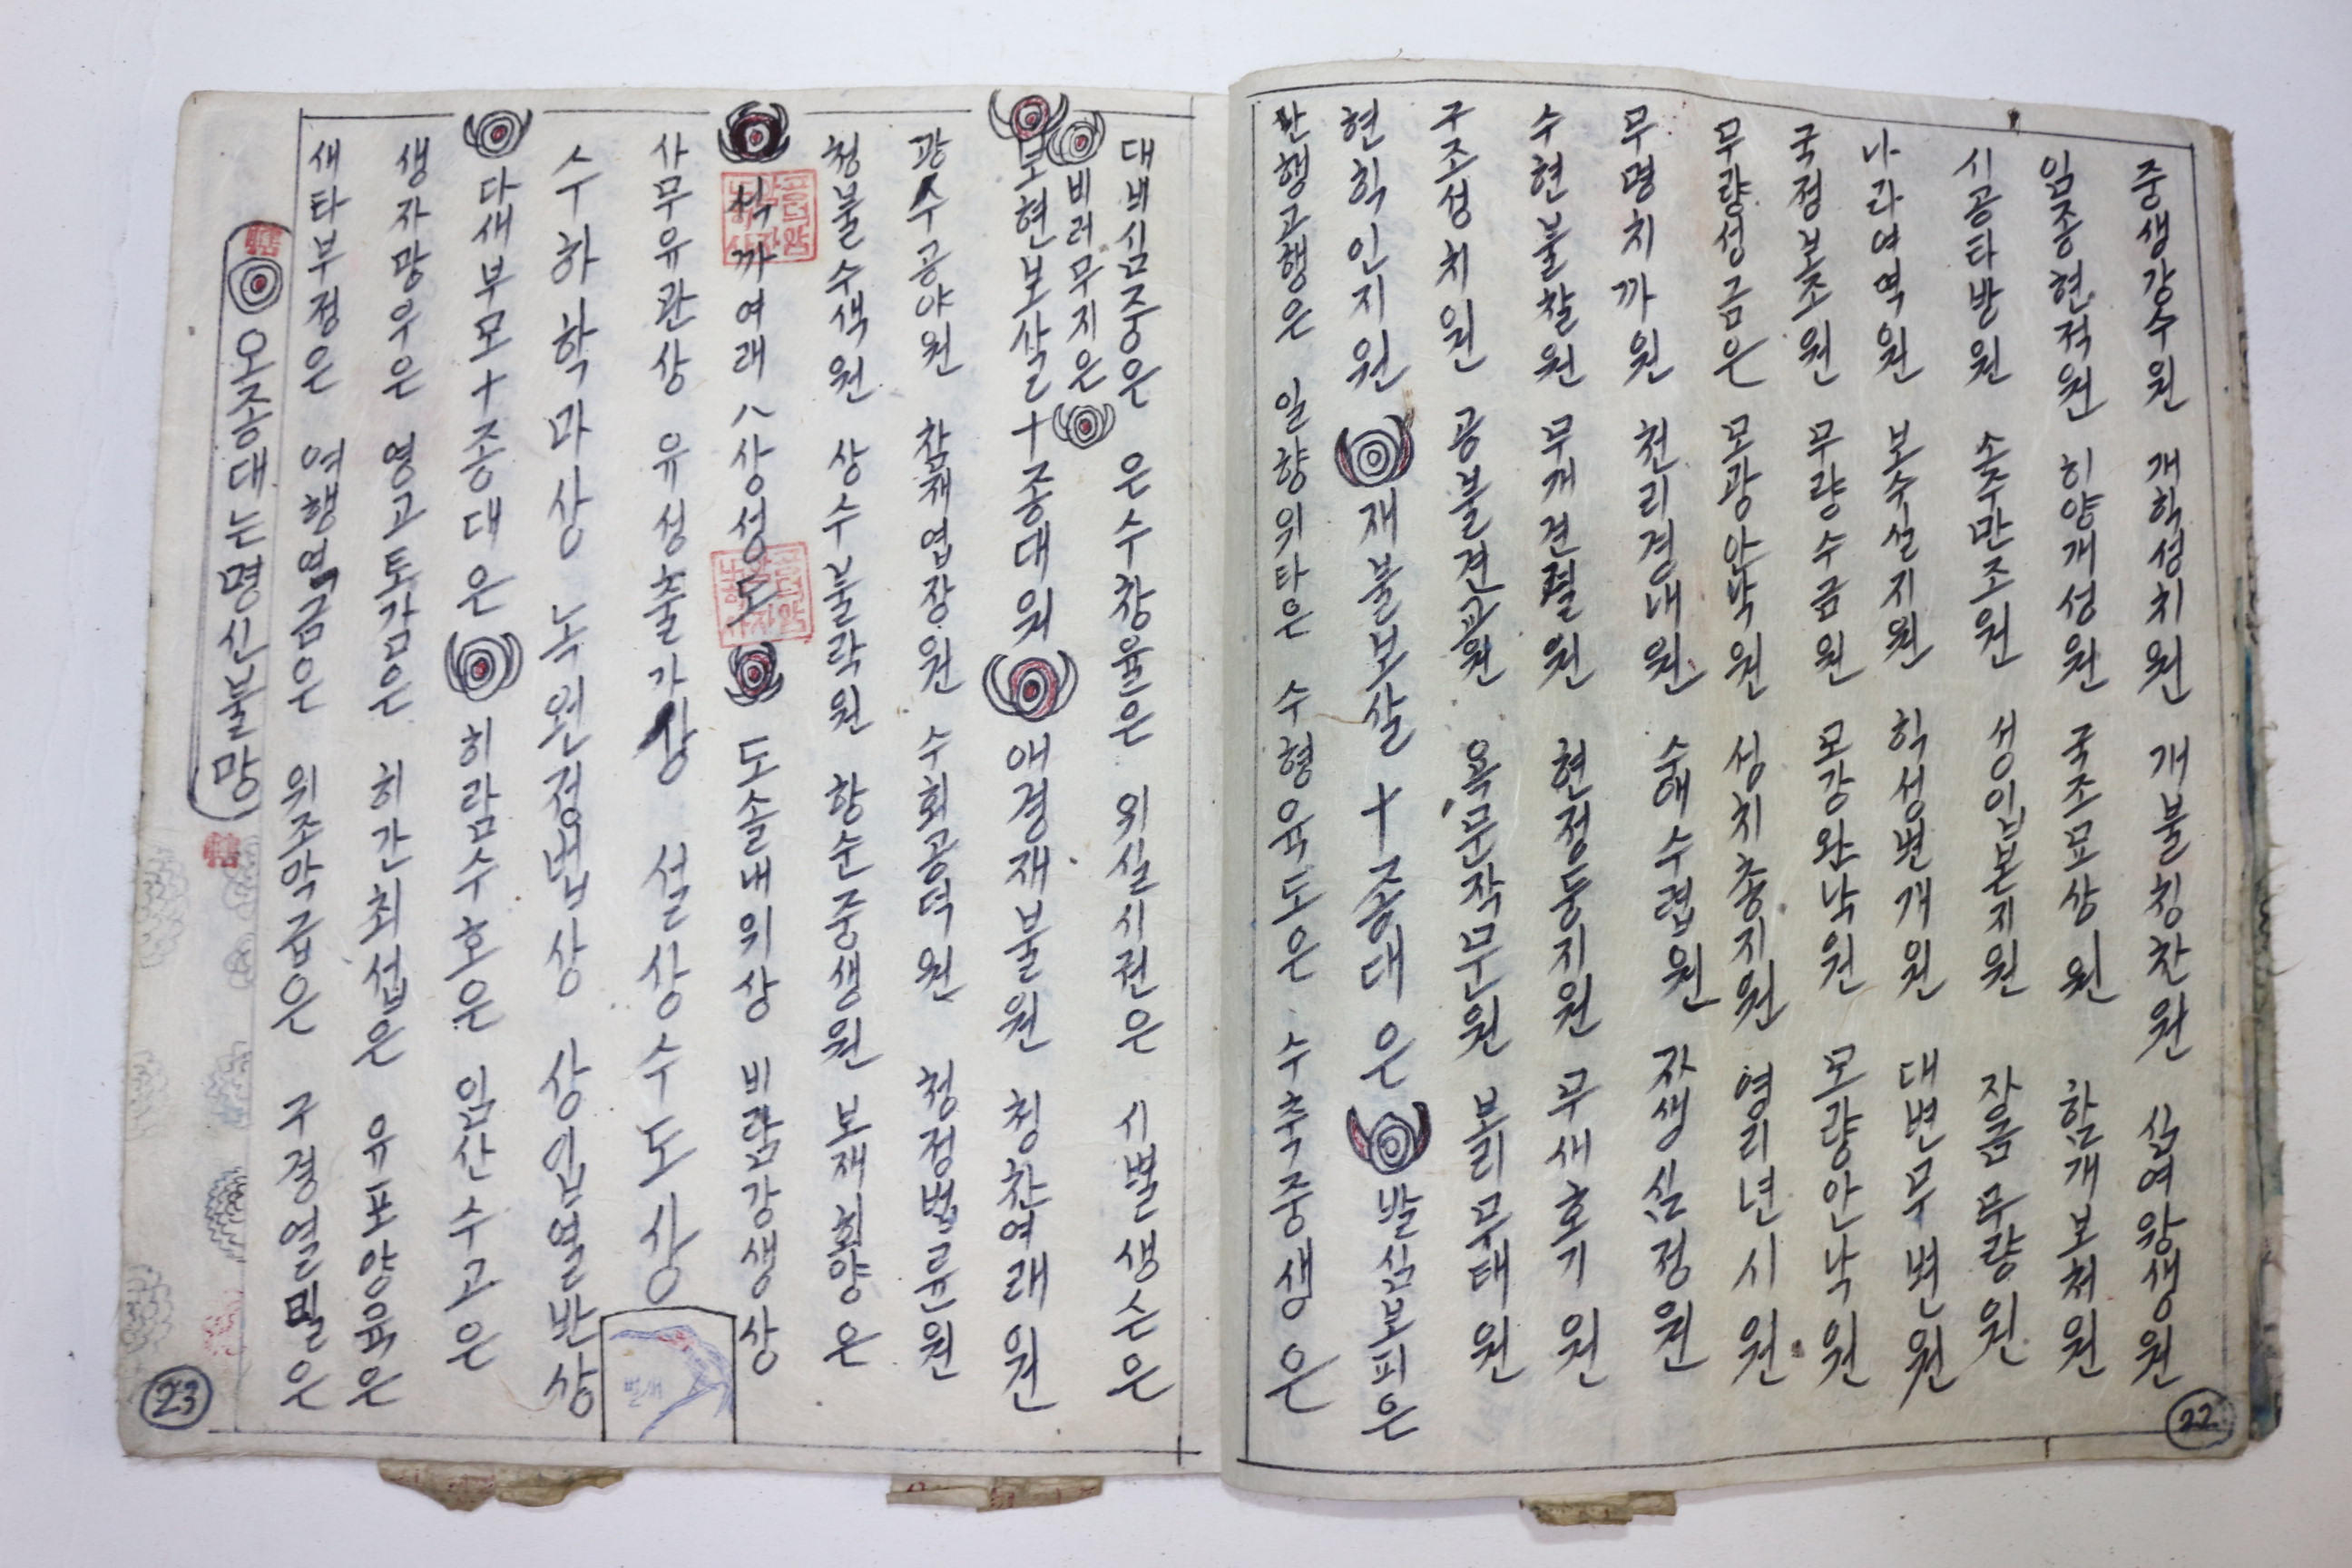 중생강수원 개학성치원 개불칭찬원 삼여왕생원
임종현적원 히양개성원 국조모상원 함개보처원
시공타방원 소주만조원 성인본지원 자음무량원
나라여역원 보수설지원 학성변개원 대변무변원
국정보조원 무량수금원 모강완낙원 모량안낙원
무량성금은 모광안낙원 성치총지원 영리년시원
무명치까원 천리경내원 수애수렵원 자생실정원
수현불찰원 무개견결원 현정등지원 무새호기원
구조성치원 공불견교원 욕문작무원 보리무태원
현학인지원 재불보살十종대은 발심보피은
난행고행은 일향위타은 수형육도은 수축중생은
22
대비심중은 은수창율은 위실시권은 시별생슨은
비러무지은
보현보살十종대원 애경재불원 칭찬여래원
광수공야원 참재업장원 수회공덕원 청정법륜원
청불수색원 상수불락원 항순중생원 보재회양은
석까여래八상성도 도솔내위상 비람강생상
사무유관상 유성출가상 설상수도상
수하학마상 녹원정법상 상임열반상
다새부모十종대은 히람수호은 임산수고은
생자망우은 영고토감은 히간최섭은 유포양육은
새타부정은 여행역금은 위조악급은 구경열밀은
오종대는명신불망
23